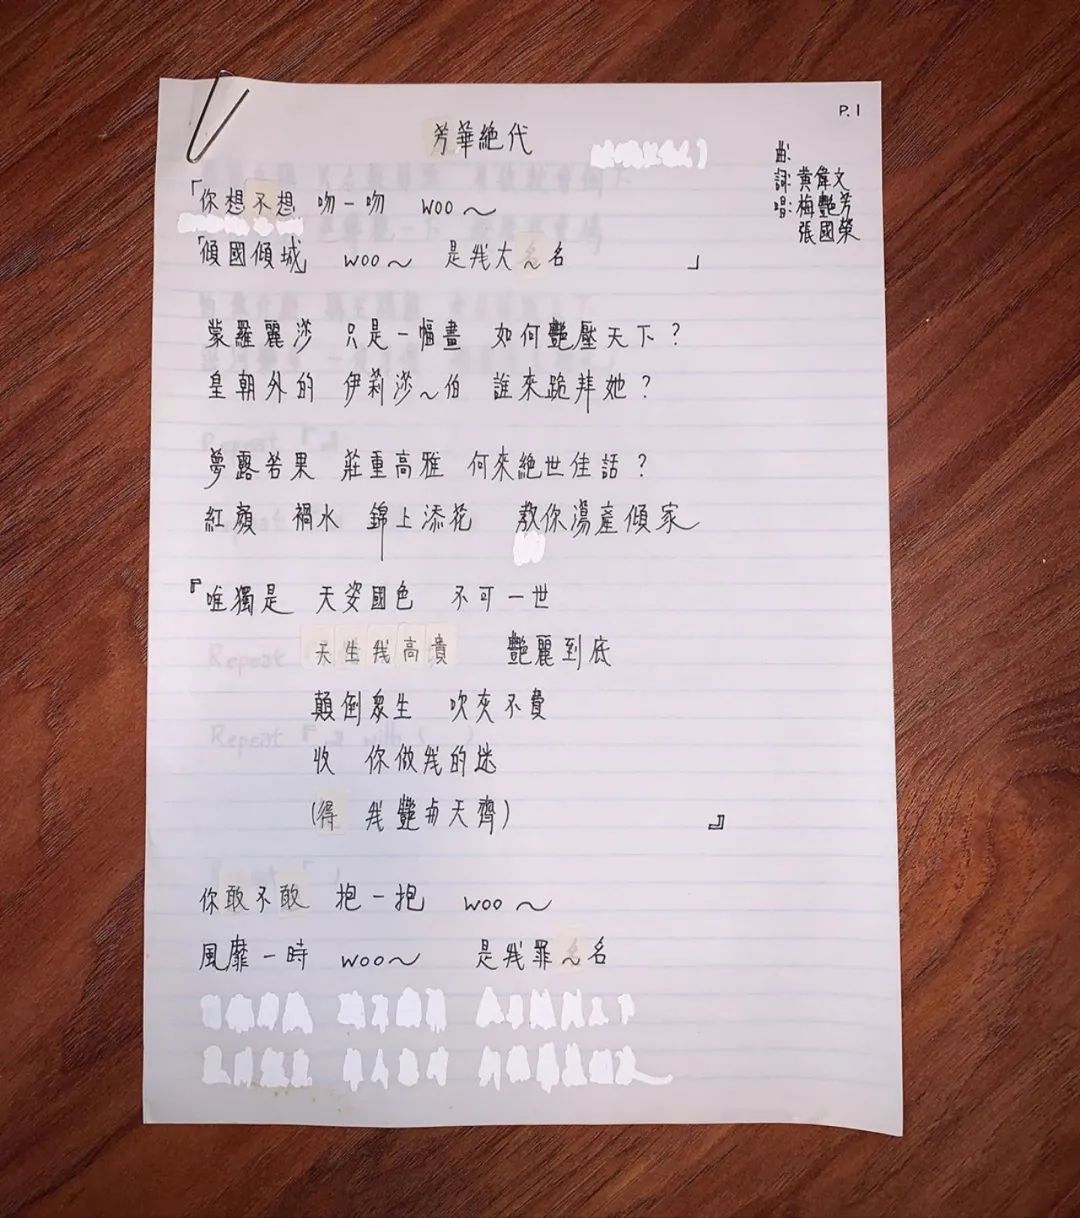 P.1
芳華絕代
曲:
詞: 黃偉文
唱: 梅艷芳
張國榮
「你想不想 吻一吻 woo～
「傾國傾城」 woo～ 是我大～名 」
蒙羅麗莎 只是一幅畫 如何艷壓天下?
皇朝外的 伊莉莎～伯 誰來跪拜她?
夢露若果 莊重高雅 何來絕世佳話?
紅顏 禍水 錦上添花 教你湯產傾家
『唯獨是 天姿國色 不可一世
天生我高貴 艷麗到底
顛倒眾生 吹灰不費
收 你做我的迷
(得 我艷與天齊) 』
你敢不敢 抱一抱 woo～
風靡一時 woo～ 是我罪～名
Repeat
Repeat 『 』 with ( )